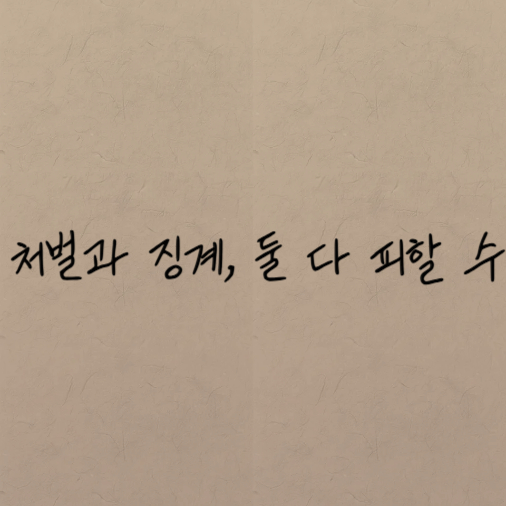 처벌과 징계, 둘 다 피할 수